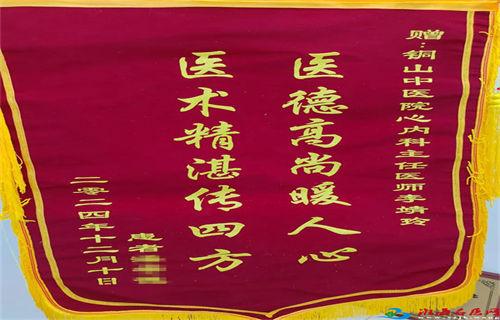 赠:铜山中医院心内科主任医师李靖玲
医德高尚暖人心
医术精湛传四方
患者
二零二四年十二月十日